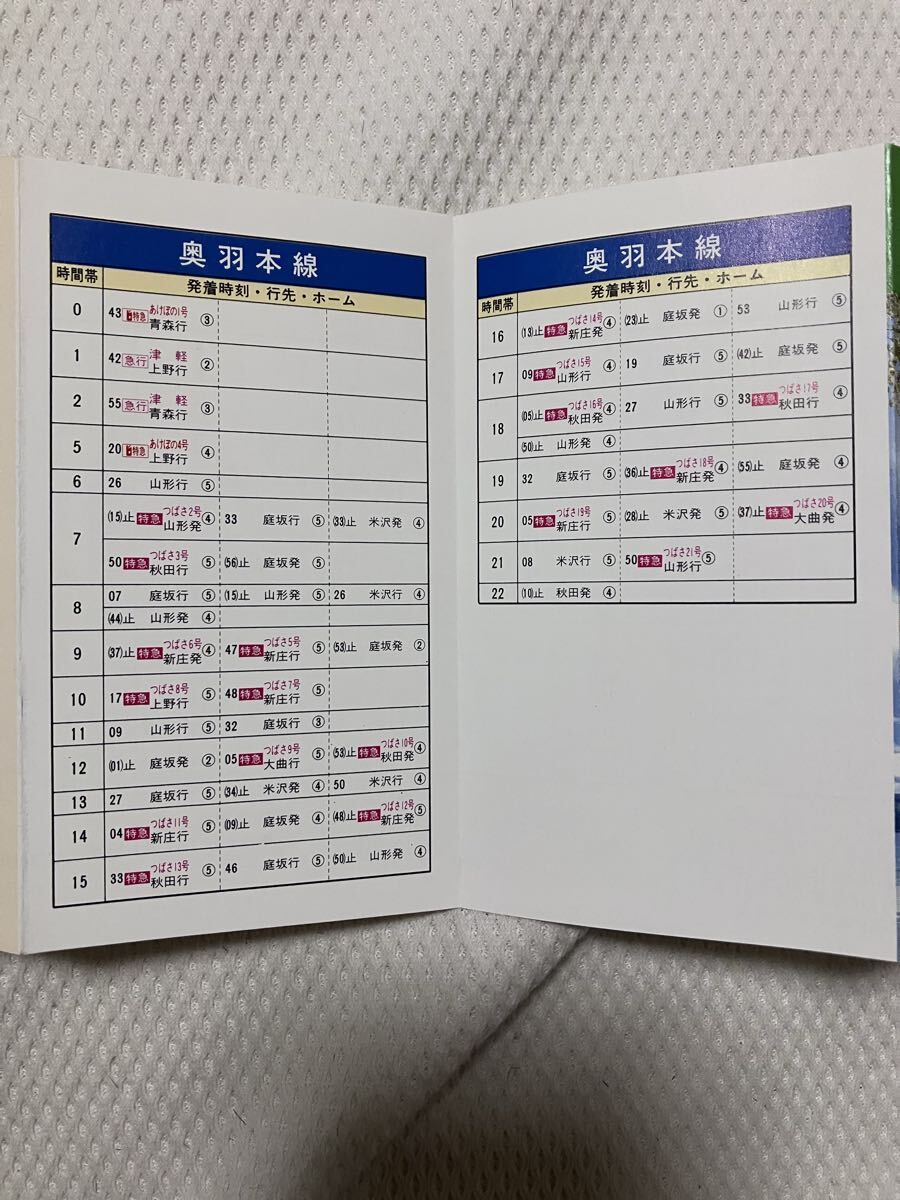 奥羽本線
時間帯 発着時刻・行先・ホーム
0 43 特急 あけぼの1号 青森行 ③
1 42 急行 津軽 上野行 ②
2 55 急行 津軽 青森行 ③
5 20 特急 あけぼの4号 上野行 ④
6 26 山形行 ⑤
7 (15)止 特急 つばさ2号 山形発 ④ 33 庭坂行 ⑤ (33)止 米沢発 ④
50 特急 つばさ3号 秋田行 ⑤ (56)止 庭坂発 ⑤
8 07 庭坂行 ⑤ (15)止 山形発 ⑤ 26 米沢行 ④
(44)止 山形発 ④
9 (37)止 特急 つばさ6号 新庄発 ④ 47 特急 つばさ5号 新庄行 ⑤ (53)止 庭坂発 ②
10 17 特急 つばさ8号 上野行 ⑤ 48 特急 つばさ7号 新庄行 ⑤
11 09 山形行 ⑤ 32 庭坂行 ③
12 (01)止 庭坂発 ② 05 特急 つばさ9号 大曲行 ⑤ (53)止 特急 つばさ10号 秋田発 ④
13 27 庭坂行 ⑤ (34)止 米沢発 ④ 50 米沢行 ④
14 04 特急 つばさ11号 新庄行 ⑤ (09)止 庭坂発 ④ (48)止 特急 つばさ12号 新庄発 ⑤
15 33 特急 つばさ13号 秋田行 ⑤ 46 庭坂行 ⑤ (50)止 山形発 ④
奥羽本線
時間帯 発着時刻・行先・ホーム
16 (13)止 特急 つばさ14号 新庄発 ④ (23)止 庭坂発 ① 53 山形行 ⑤
17 09 特急 つばさ15号 山形行 ④ 19 庭坂行 ⑤ (42)止 庭坂発 ⑤
18 (05)止 特急 つばさ16号 秋田発 ④ 27 山形行 ⑤ 33 特急 つばさ17号 秋田行 ④
(50)止 山形発 ④
19 32 庭坂行 ⑤ (36)止 特急 つばさ18号 新庄発 ④ (55)止 庭坂発 ④
20 05 特急 つばさ19号 新庄行 ⑤ (28)止 米沢発 ⑤ (37)止 特急 つばさ20号 大曲発 ④
21 08 米沢行 ⑤ 50 特急 つばさ21号 山形行 ⑤
22 (10)止 秋田発 ④